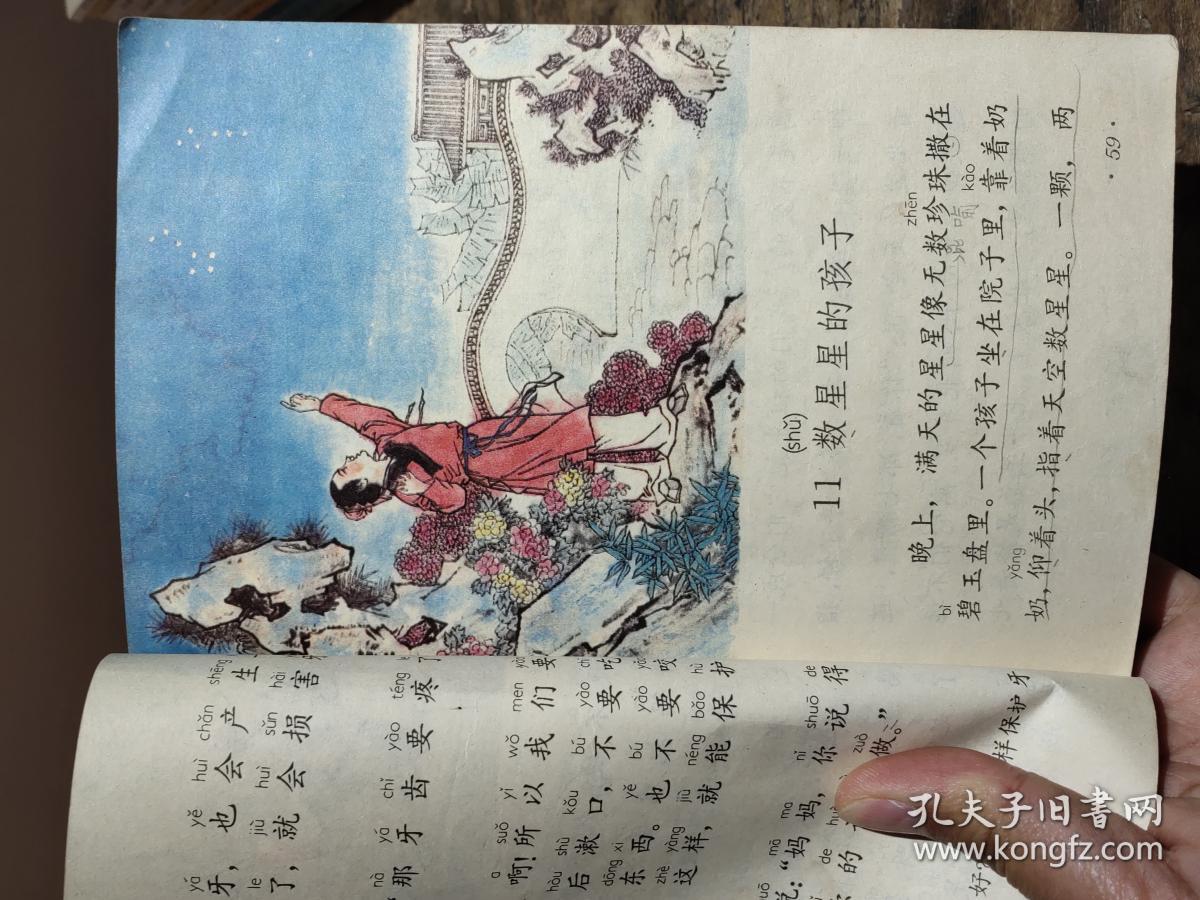 yá yě huì chǎn shēng
牙，也会产生
le jiù huì sǔn hài
了，就会损害
nà yá chǐ yào téng
那牙齿要疼了
a suǒ yǐ wǒ men
啊！所以我们要
hòu shù kǒu bú yào chī
后漱口，不要吃
dōng xi yě bú yào
东西。也不要咬
zhè yàng jiù néng bǎo hù
这样，就能保护
mā ma nǐ shuō de
说：“妈妈，你说得
de zuò
的 做。”
样保护牙
好
(shǔ)
11 数星星的孩子
zhēn
晚上，满天的星星像无数珍珠撒在
bì kào
碧玉盘里。一个孩子坐在院子里，靠着奶
yǎng
奶，仰着头，指着天空数星星。一颗，两
·59·
孔夫子旧书网
www.kongfz.com